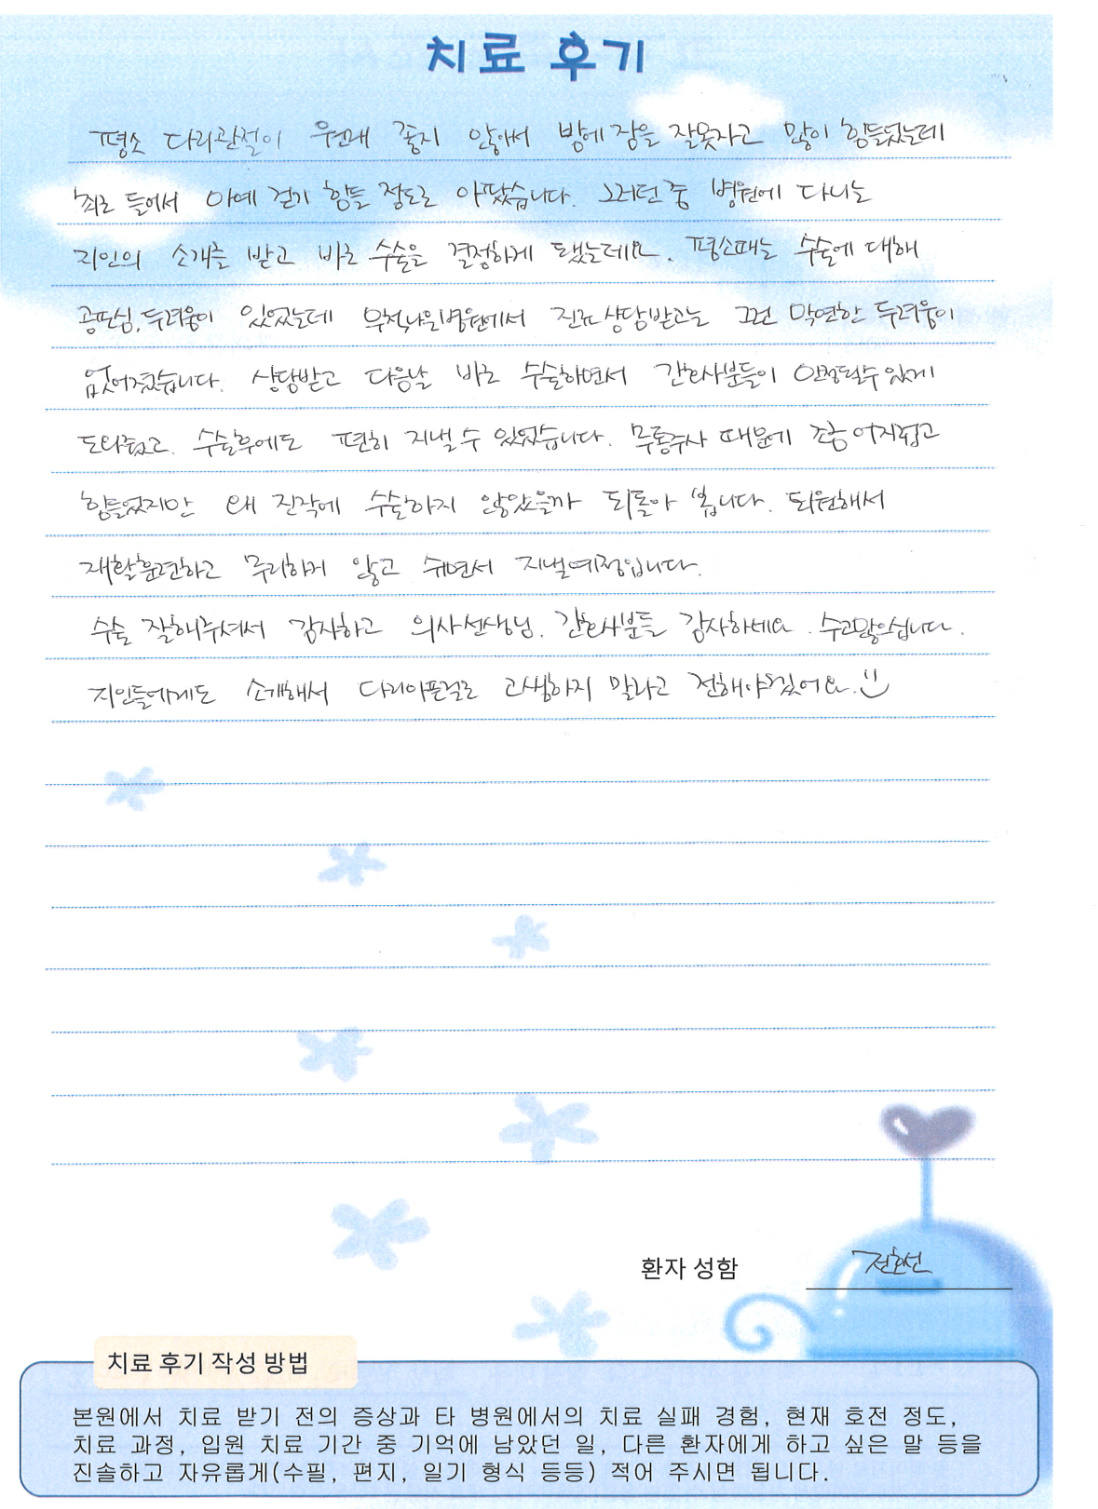 치료 후기
평소 다리관절이 워낙에 좋지 않아서 밤에 잠을 잘못자고 많이 힘들었는데
최근 들어서 아예 걷기 힘들 정도로 아팠습니다. 그러던 중 병원에 다니는
지인의 소개를 받고 바로 수술을 결정하게 됐는데요. 평소때는 수술에 대해
공포심, 두려움이 있었는데 부천나은병원에서 진료상담받고는 그런 막연한 두려움이
없어졌습니다. 상담받고 다음날 바로 수술하면서 간호사분들이 안정될수있게
도와줬고. 수술후에도 편히 지낼수 있었습니다. 무통주사 때문에 조금 어지럽고
힘들었지만 왜 진작에 수술하지 않았을까 되돌아 봅니다. 퇴원해서
재활훈련하고 무리하게 않고 쉬면서 지낼예정입니다.
수술 잘해주셔서 감사하고 의사선생님. 간호사분들 감사하세요. 수고많으십니다.
지인들에게도 소개해서 다리아픈걸로 고생하지 말라고 전해야겠어요.
환자 성함 전호선
치료 후기 작성 방법
본원에서 치료 받기 전의 증상과 타 병원에서의 치료 실패 경험, 현재 호전 정도,
치료 과정, 입원 치료 기간 중 기억에 남았던 일, 다른 환자에게 하고 싶은 말 등을
진솔하고 자유롭게(수필, 편지, 일기 형식 등등) 적어 주시면 됩니다.